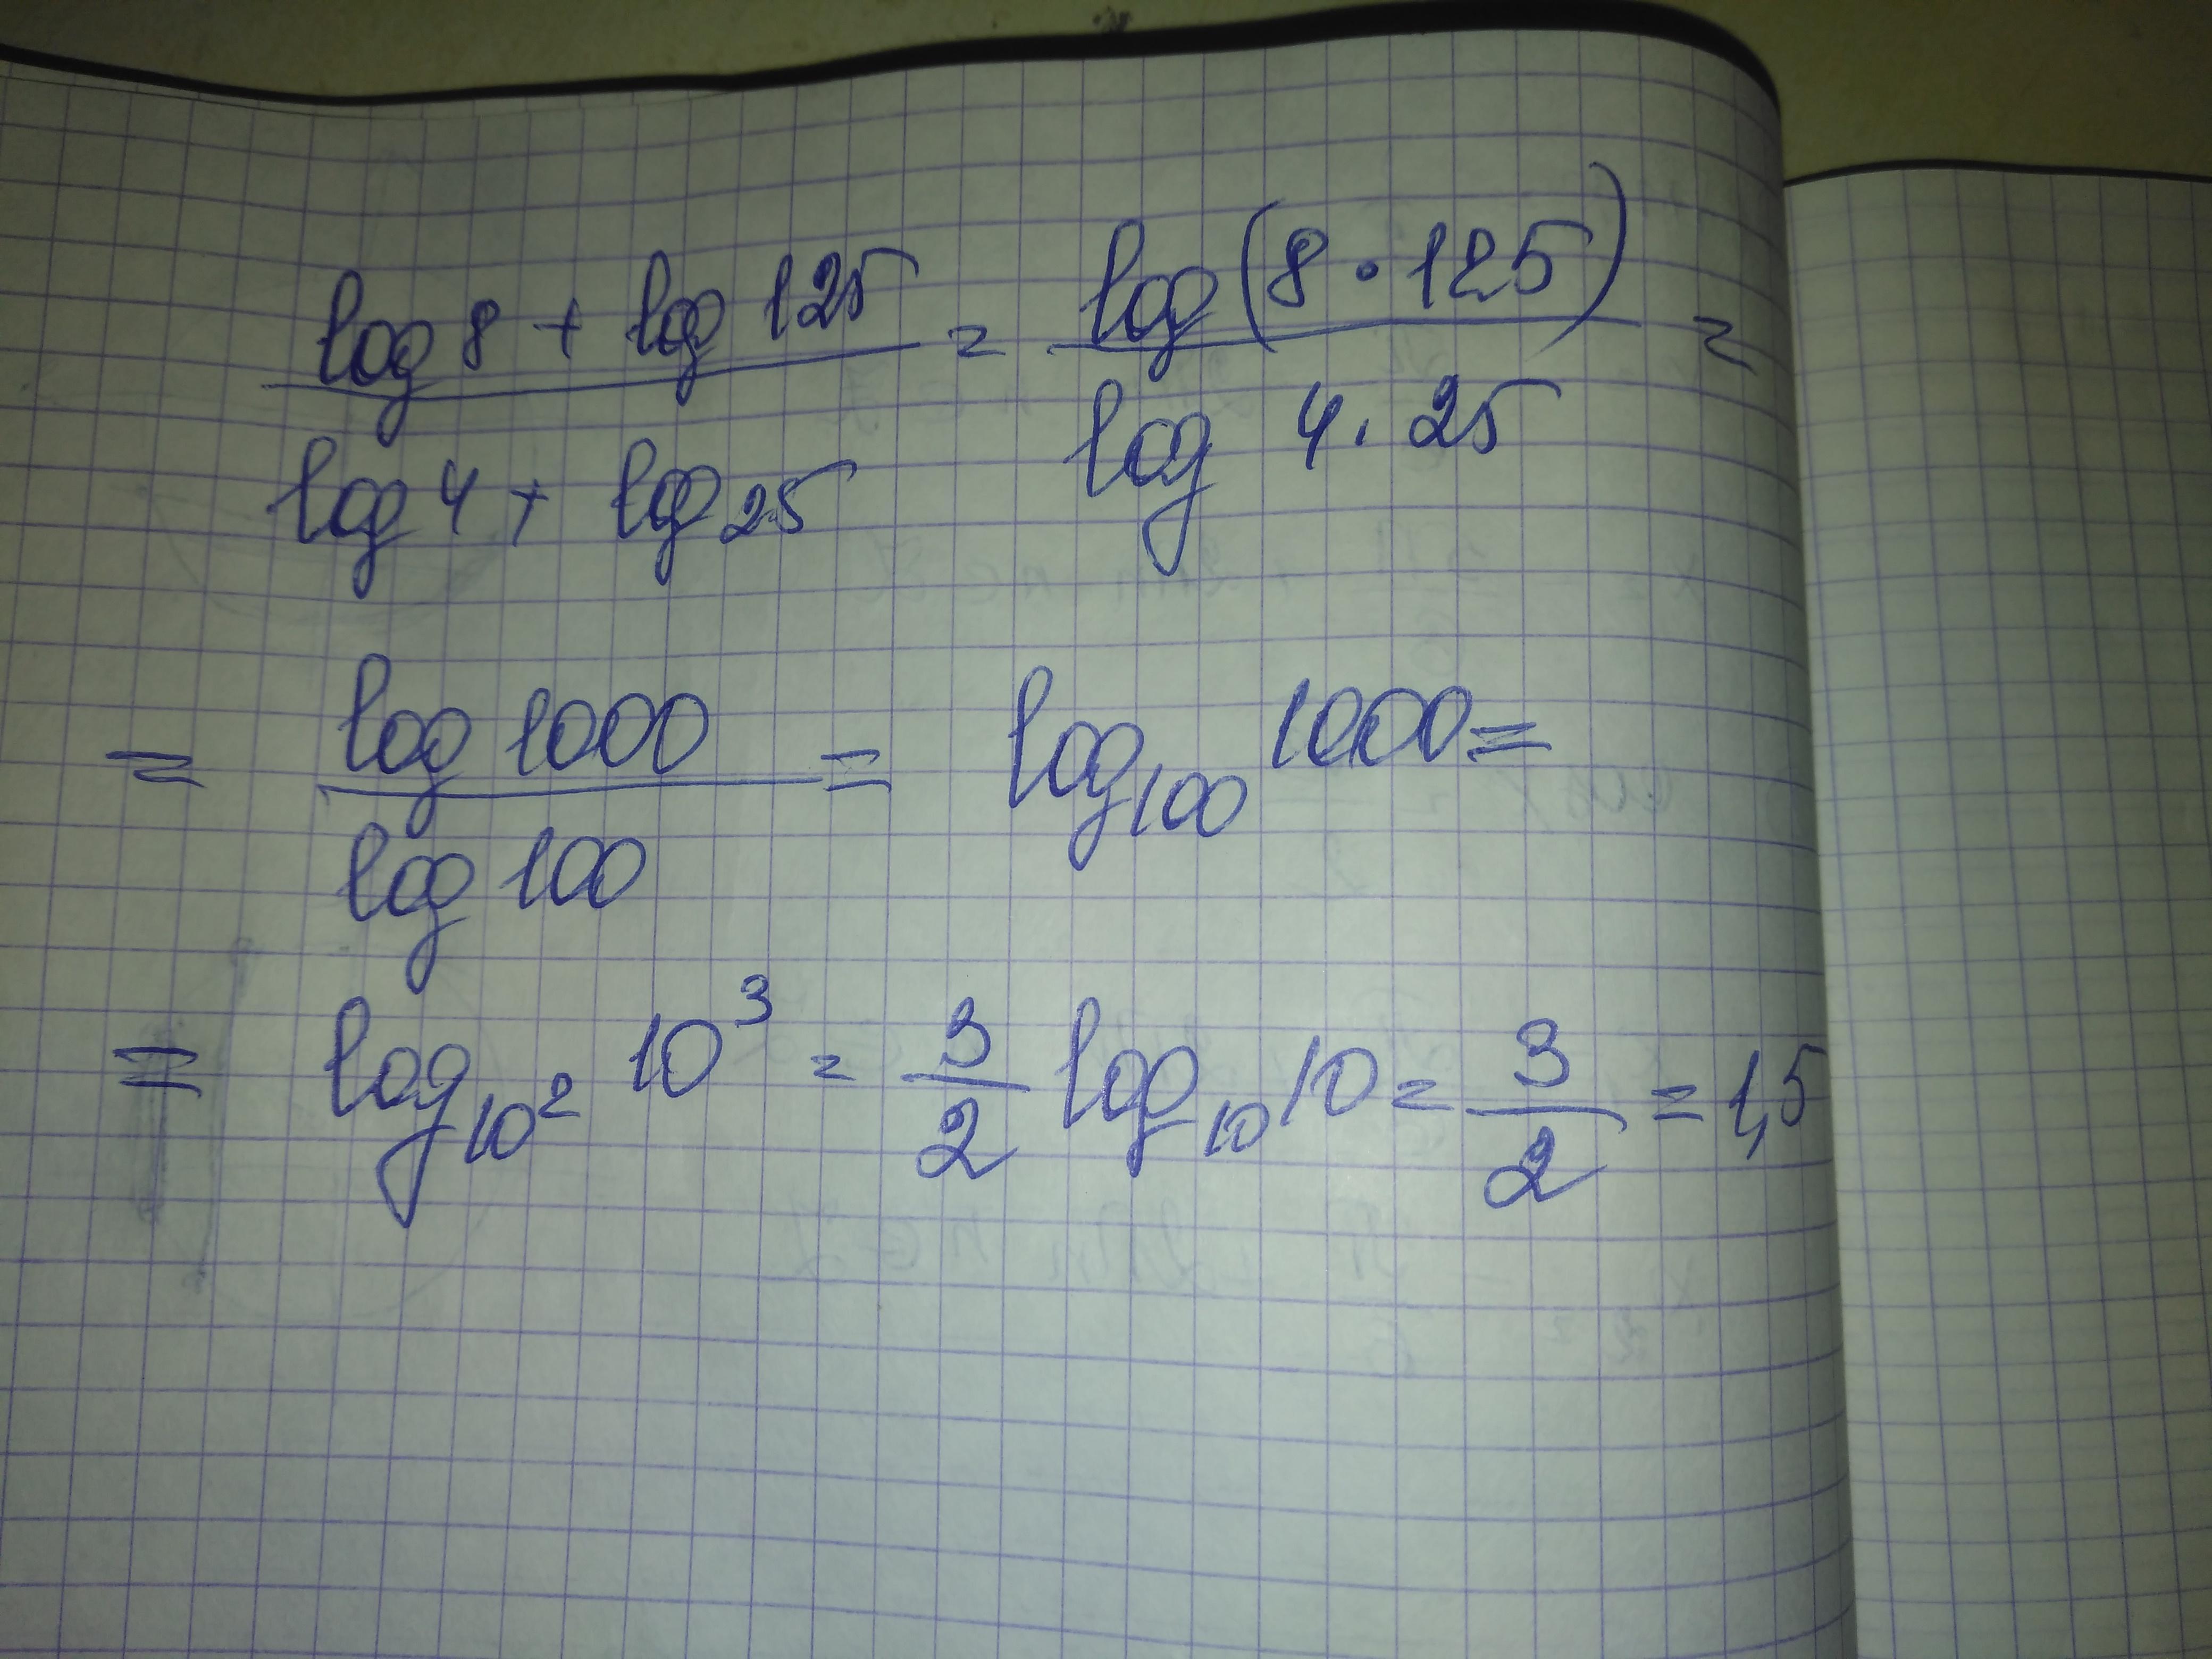 (log 8 + log 125)/(log 4 + log 25) = log(8 · 125)/log 4 · 25 =
= log 1000/log 100 = log₁₀₀ 1000 =
= log₁₀² 10³ = 3/2 log₁₀ 10 = 3/2 = 1,5